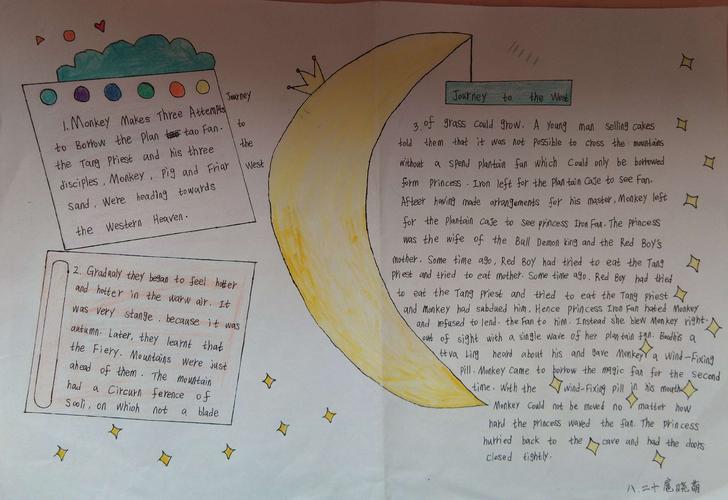 1. Monkey Makes Three Attempts
to Borrow the Plan tao Fan.
the Tang Priest and his three
disciples, Monkey, Pig and Friar
Sand, Were heading towards
the Western Heaven.
Journey
to
the
West
2. Gradualy they began to feel hotter
and hotter in the warw air. It
was very stange, because it was
autumn. Later, they learnt that
the Fiery. Mountains were just
ahead of them. The mountain
had a Circurn ference of
Sooli, on which not a blade
Journey to the West
3. of grass Could grow. A young man selling cakes
told them that it was not possible to cross the mountains
without a spend plantain fan which Could only be borrowed
form princess. Iron left for the Plantain Caje to see Fan.
Afteer having made arrangements for his master, Monkey left
for the plantain caje to see princess Iron Fan. The Princess
was the wife of the Bull Demon king and the Red Boy's
mother. Some time ago, Red Boy had tried to eat the Tang
priest and tried to eat mother. Some time ago. Red Boy had tried
to eat the Tang priest and tried to eat the Tang priest
and Monkey had subdued him. Hence princess Iron Fan hated Monkey
and refused to lend. the Fan to him. Instead she blew Monkey right.
out of sight with a single wave of her plantain fan. Bodhis a
ttva Ling heard about his and Gave Monkey a Wind-Fixing
Pill. Monkey Came to borrow the magic fan for the second
time. With the wind-Fixing pill in his mouth
Monkey Could not be moved no matter how
hard the princess waved the fan. The princess
hurried back to the cave and had the doors
closed tightly.
八.二十 扈晓萌